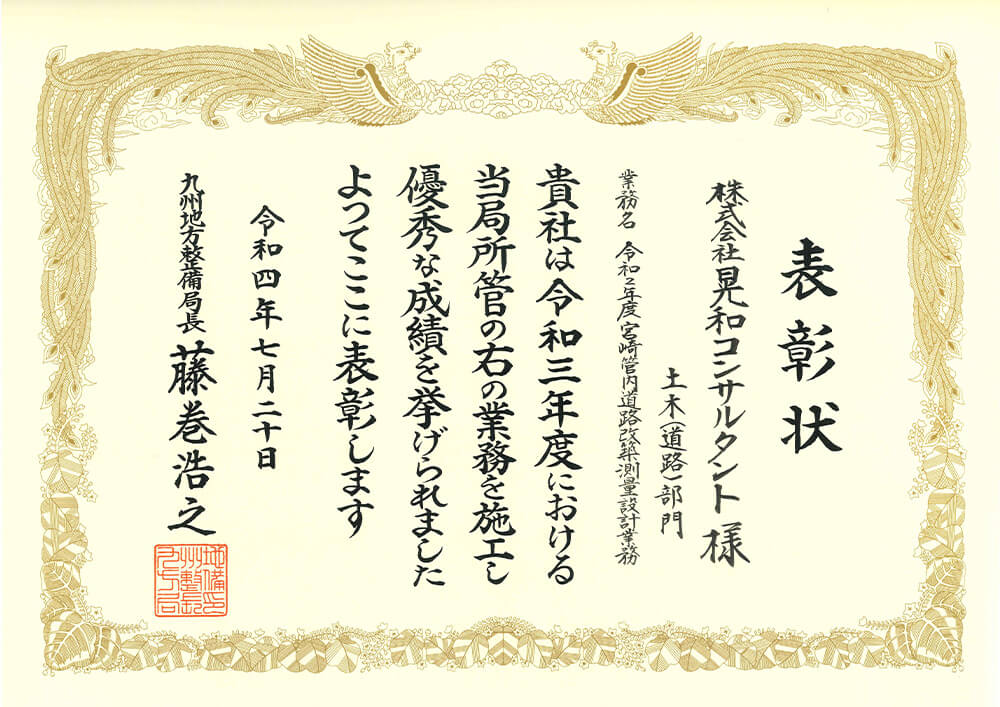 表彰状
株式会社晃和コンサルタント 様
土木(道路)部門
業務名 令和2年度宮崎管内道路改築測量設計業務
貴社は令和三年度における
当局所管の右の業務を施工し
優秀な成績を挙げられました
よってここに表彰します
令和四年七月二十日
九州地方整備局長 藤巻浩之